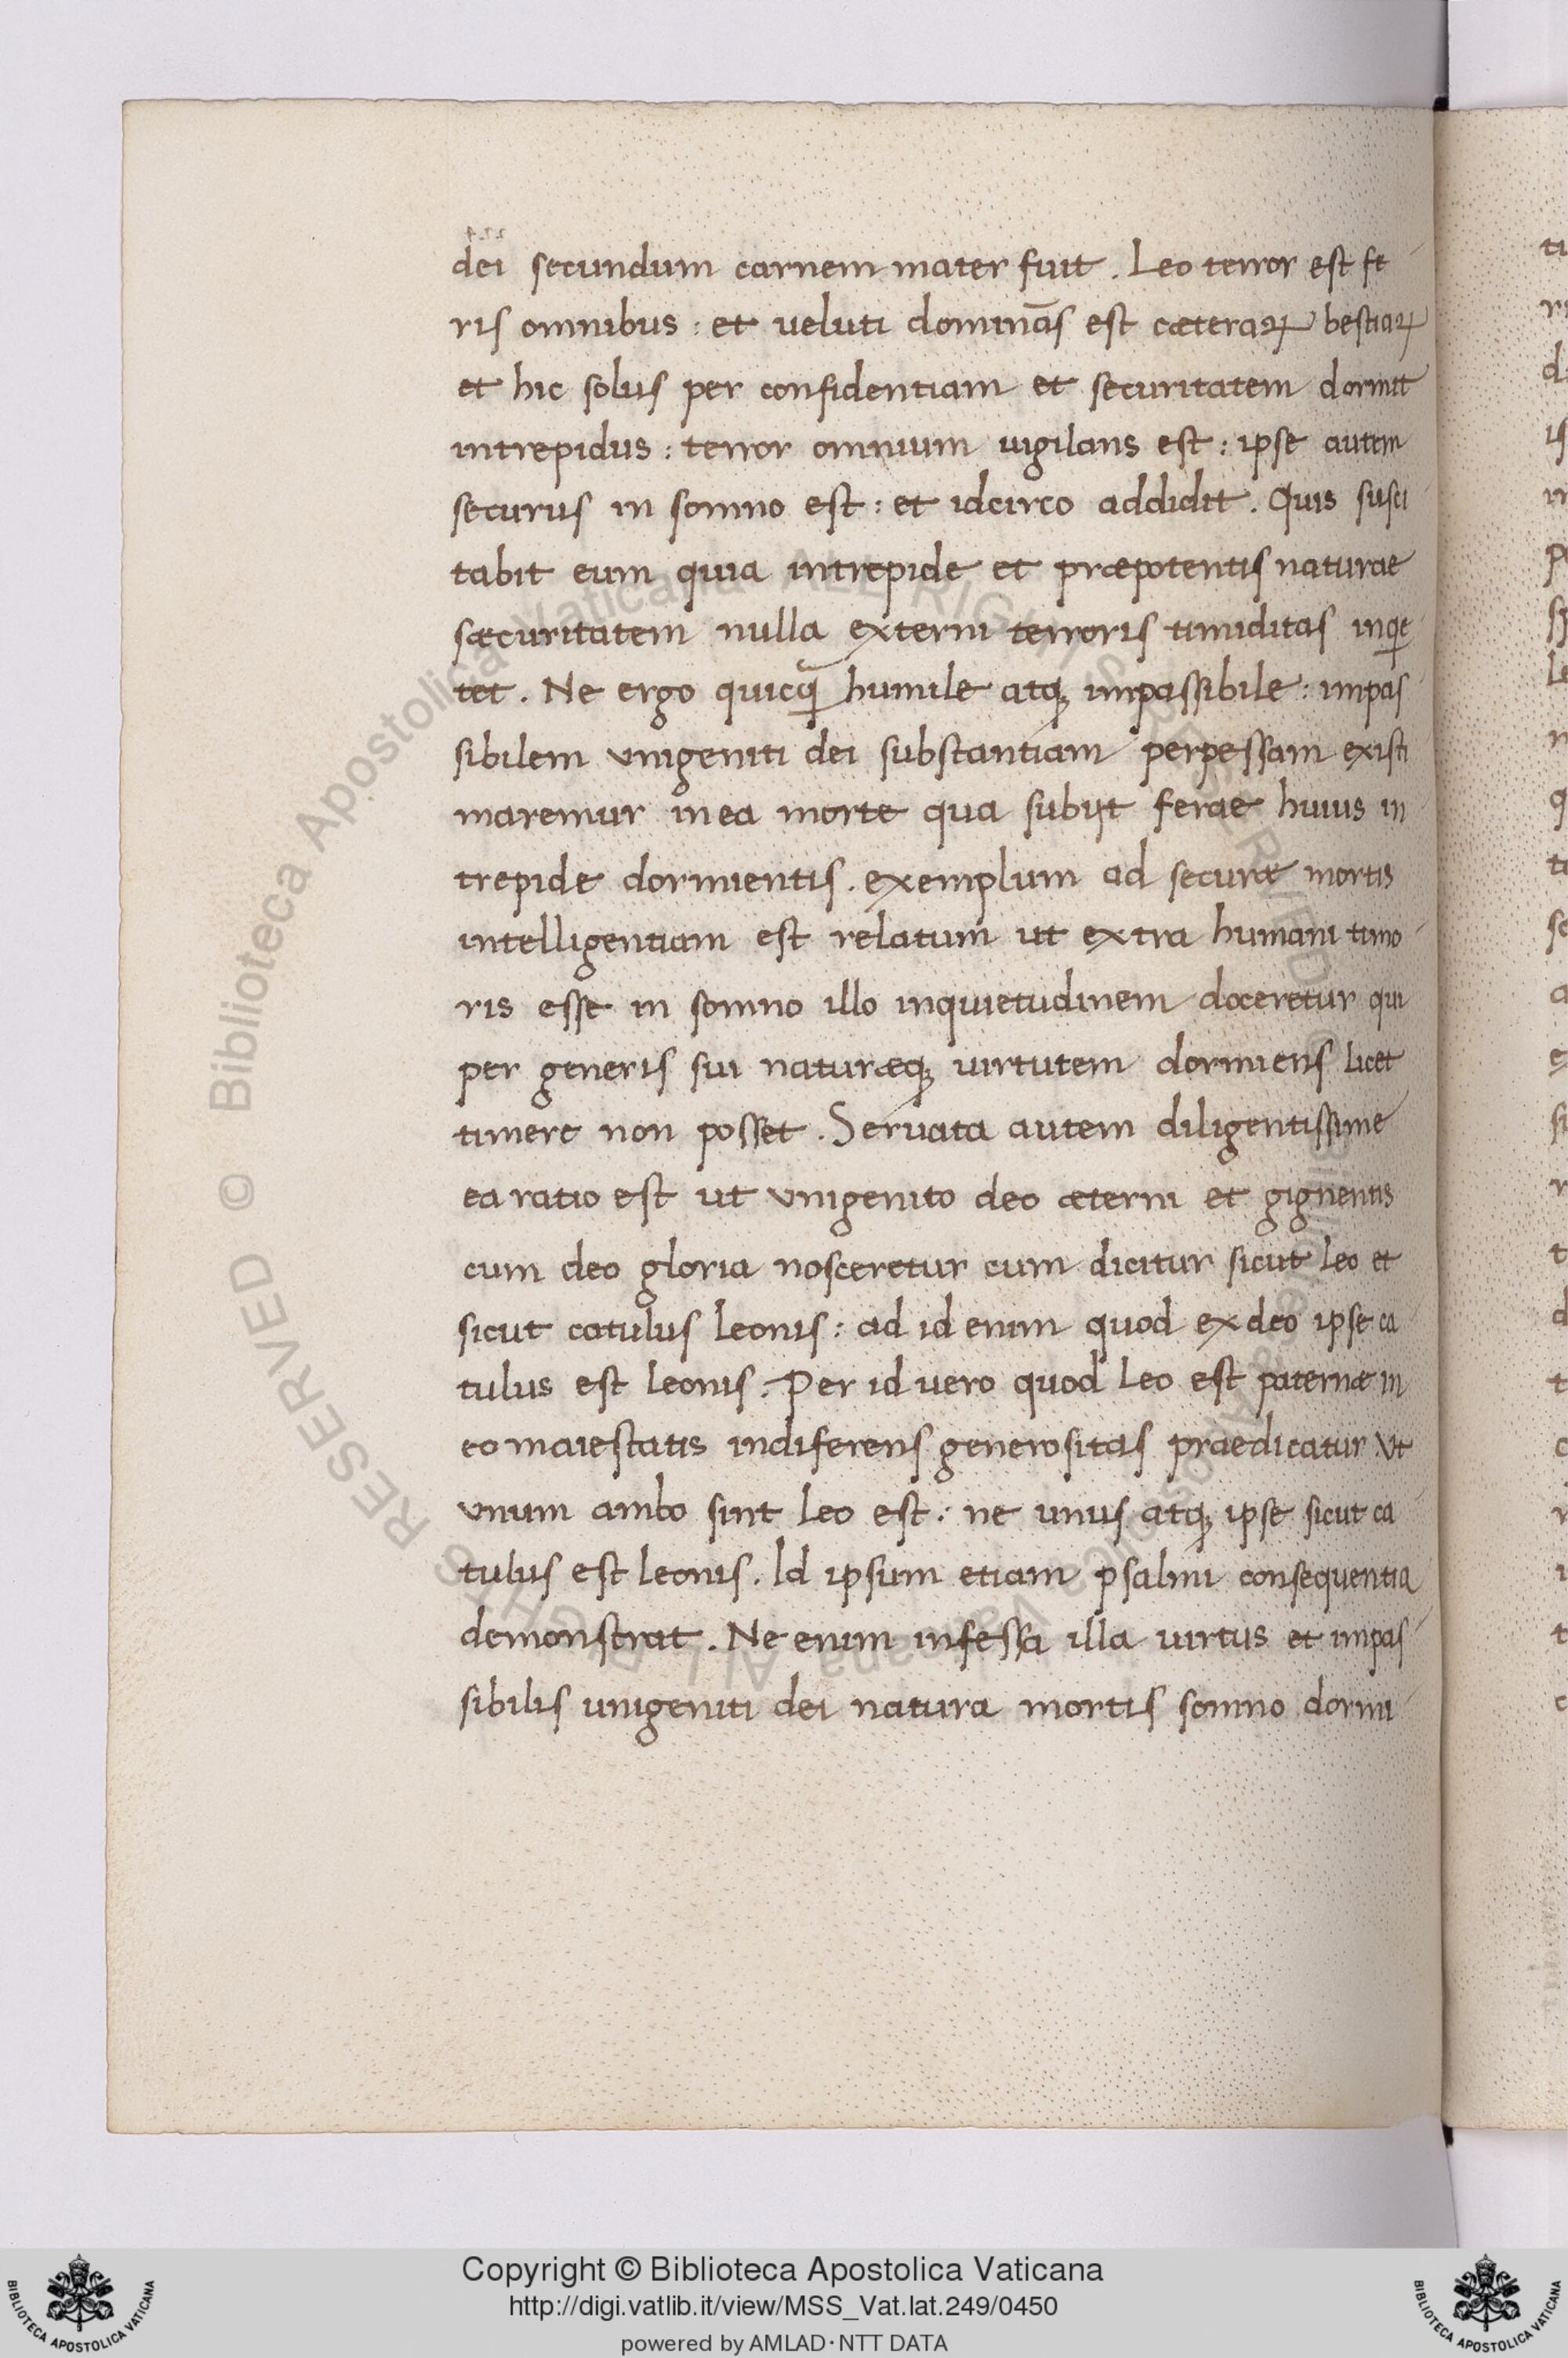 dei secundum carnem mater fuit. Leo terror est fe
ris omnibus: et ueluti dominās est cæteraꝝ bestiaꝝ
et hic solus per confidentiam et securitatem dormit
intrepidus: terror omnium uigilans est: ipse autem
securus in somno est: et idcirco addidit. Quis susci
tabit eum quia intrepide et præpotentis naturae
sæcuritatem nulla externi terroris timiditas inqͥe
tet. Ne ergo quicq̃ humile atq; impassibile: impas
sibilem vnigeniti dei substantiam perpessam existi
maremur in ea morte qua subijt ferae huius in
trepide dormientis. exemplum ad securæ mortis
intelligentiam est relatum ut extra humani timo
ris esse in somno illo inquietudinem doceretur qui
per generis sui naturæq; uirtutem dormiens licet
timere non posset. Seruata autem diligentissime
ea ratio est ut vnigenito deo æterni et gignentis
cum deo gloria nosceretur cum dicitur sicut leo et
sicut catulus leonis: ad id enim quod ex deo ipse ca
tulus est leonis. Per id uero quod leo est paternæ in
eo maiestatis indiferens generositas praedicatur vt
vnum ambo sint leo est: ne unus atq; ipse sicut ca
tulus est leonis. Id ipsum etiam psalmi consequentia
demonstrat. Ne enim infessa illa uirtus et impas
sibilis unigeniti dei natura mortis somno dormi
© Biblioteca Apostolica Vaticana ALL RIGHTS RESERVED
Copyright © Biblioteca Apostolica Vaticana
http://digi.vatlib.it/view/MSS_Vat.lat.249/0450
powered by AMLAD·NTT DATA
BIBLIOTECA APOSTOLICA VATICANA
BIBLIOTECA APOSTOLICA VATICANA